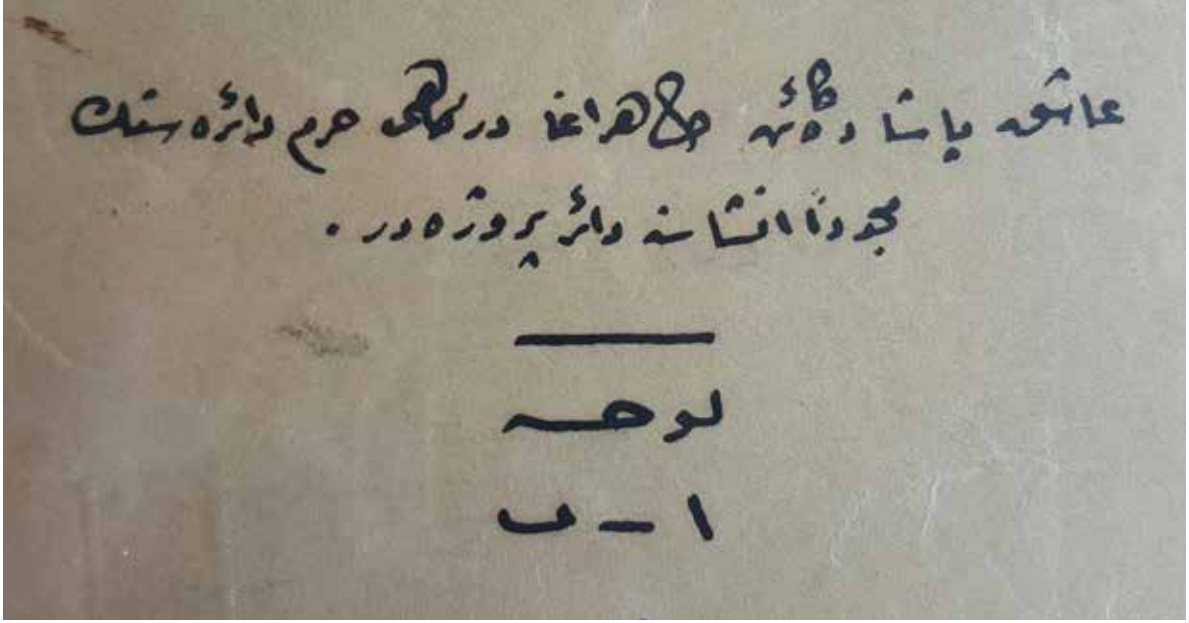 عاشق پاشاده كائن طاهر اغا درگاهی حرم دائره سنك
مجدداً انشاسنه دائر پروژه در .
لوحه